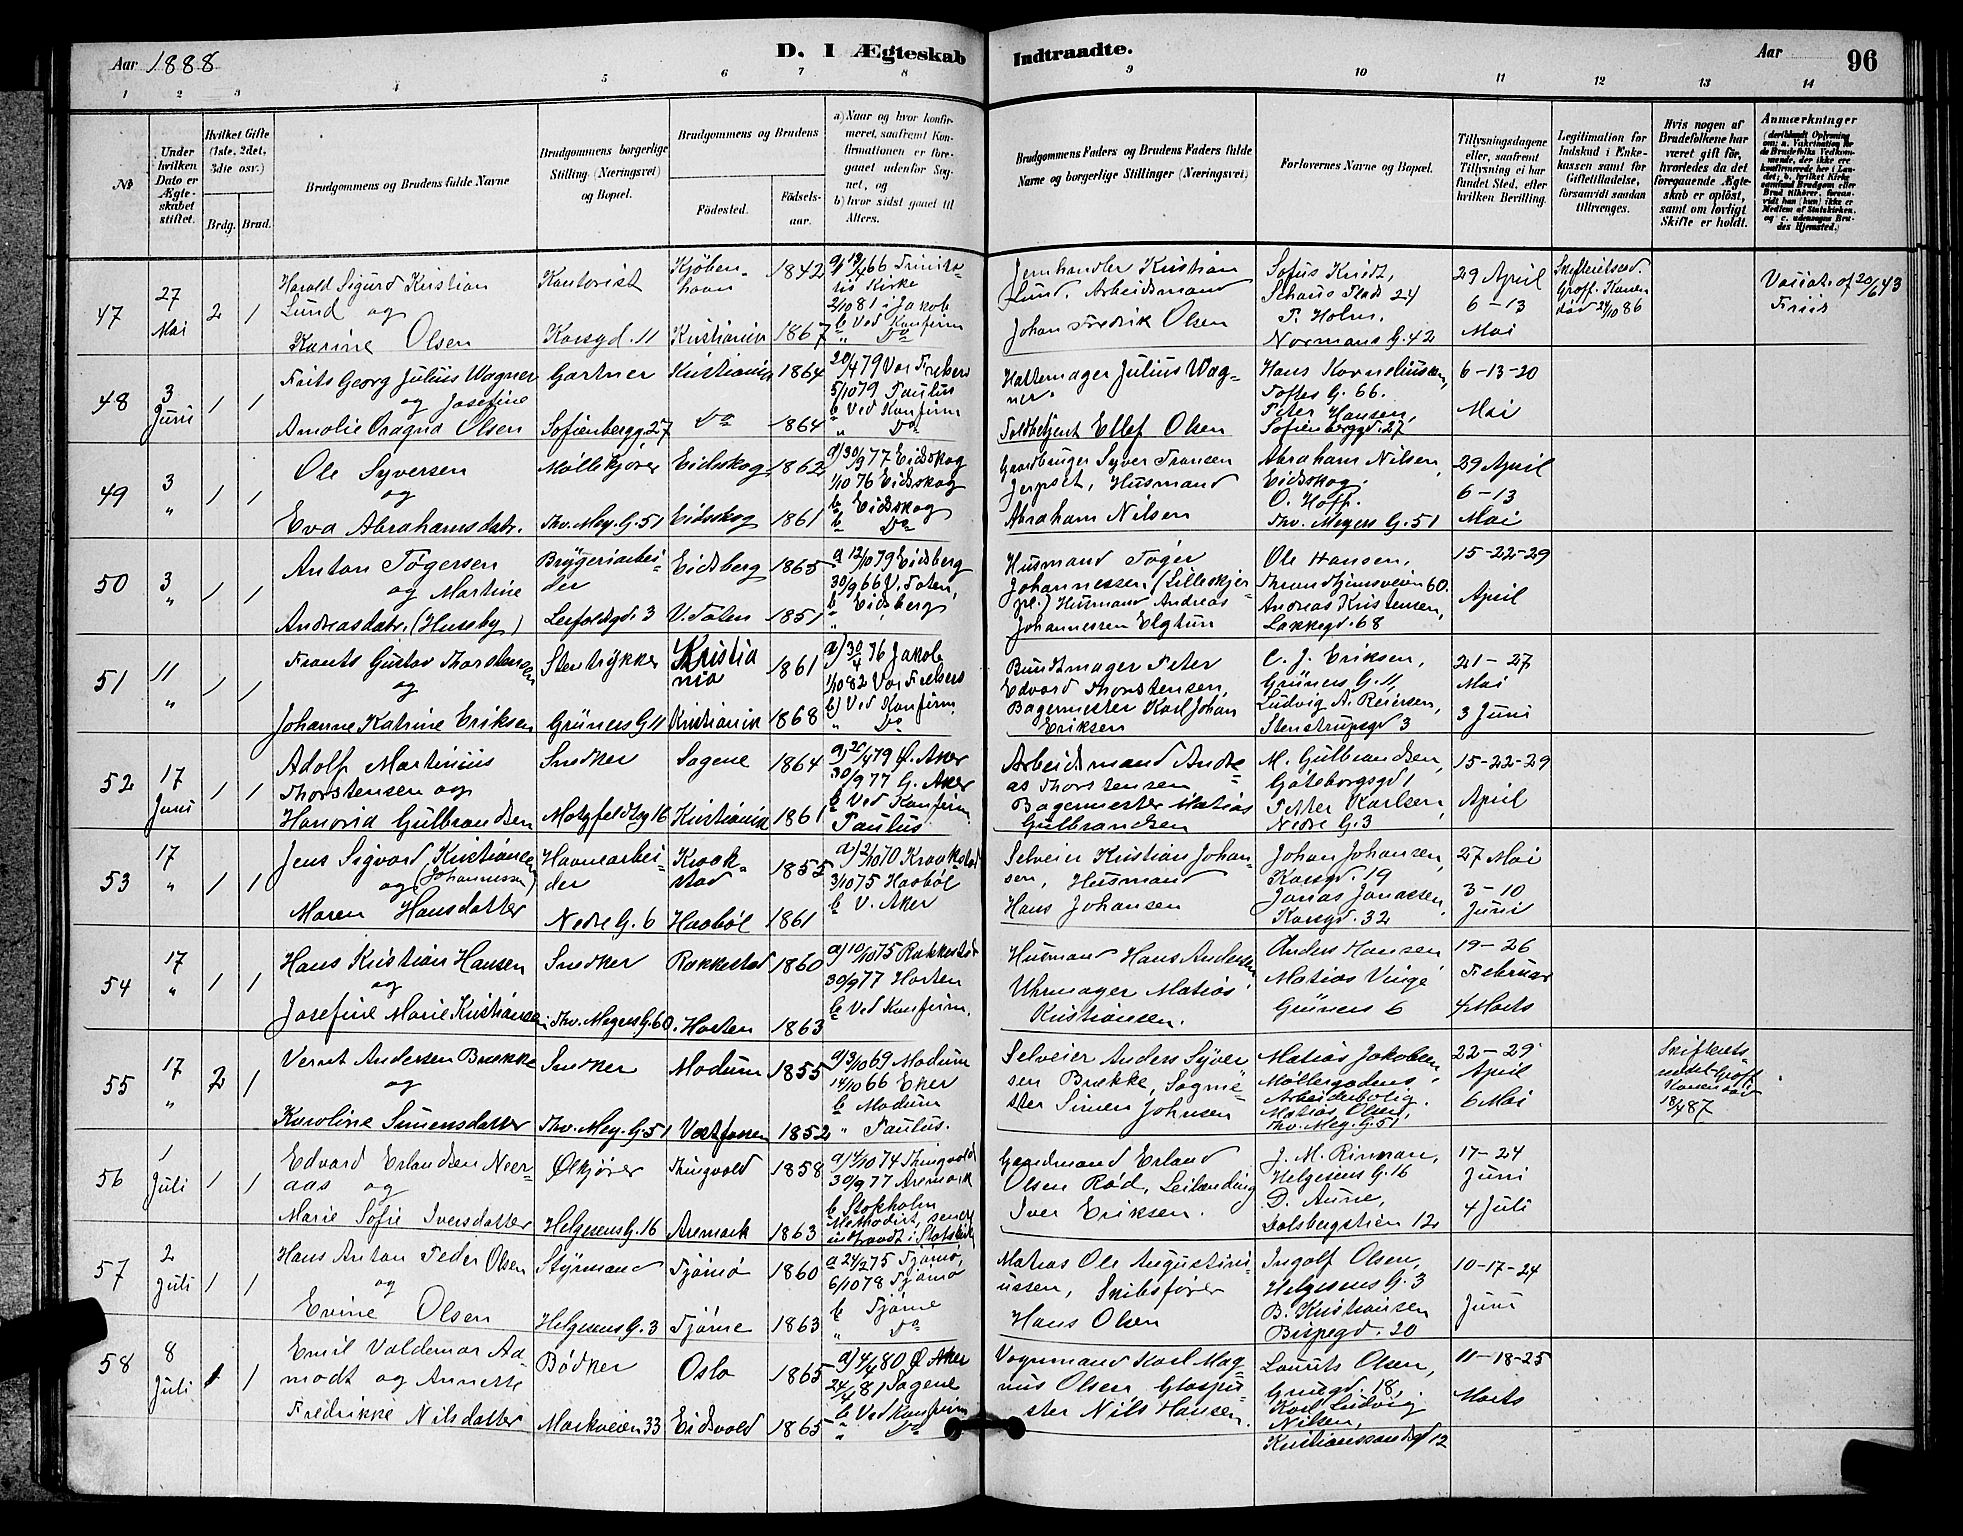 Aar 1888
D. I Ægteskab Indtraadte.
Aar
96
1 2 3 4 5 6 7 8 9 10 11 12 13 14
№
Under hvilken Dato er Ægteskabet stiftet.
Hvilket Gifte (1ste, 2det, 3die osv.)
Brdg. Brud.
Brudgommens og Brudens fulde Navne
Brudgommens borgerlige Stilling (Næringsvei) og Bopæl.
Brudgommens og Brudens
Fødested.
Fødselsaar.
a) Naar og hvor konfirmeret, saafremt Konfirmationen er foregaaet udenfor Sognet, og
b) hvor sidst gaaet til Alters.
Brudgommens Faders og Brudens Faders fulde Navne og borgerlige Stillinger (Næringsvei)
Forlovernes Navne og Bopæl.
Tillysningsdagene eller, saafremt Tillysning ei har fundet Sted, efter hvilken Bevilling.
Legitimation for Indskud i Enkekassen samt for Giftetilladelse, forsaavidt saadan tiltrænges.
Hvis nogen af Brudefolkene har været gift før, hvorledes da det foregaaende Ægteskab er opløst, samt om lovligt Skifte er holdt.
Anmærkninger
47
27 Mai
2 1
Harald Sigurd Kristian
Lund og
Karine Olsen
Kontorist
Korsgd. 11
Kjøbenhavn
Kristiania
1842
1867
a) 12/4 66 Trinitatis Kirke
2/10 81 i Jakob
b Ved Konfirm
" Do
Jernhandler Kristian
Lund. Arbeidsmand
Johan Fredrik Olsen
Schous Plads 24
T. Holm,
Normans G. 42
29 April
6-13
Mai
48
3 Juni
1 1
Frits Georg Julius Wagner
og Josefine
Amalie Dragna Olsen
Gartner
Sofienbergg. 27
Kristiania
Do
1864
1864
20/4 79 Vor Frelsers
5/10 79 Paulus
b Ved Konfirm
" Do
Hattemager Julius Wagner.
Toldbetjent Ellef Olsen
Hans Korneliussen,
Toftes G. 66.
Peter Hansen,
Sofienberggd. 27
6-13-20
Mai
49
3 "
1 1
Ole Syversen
og
Eva Abrahamsdatr.
Møllekjører
Thv. Mey. G. 51
Eidskog
Eidsskog
1862
1861
a) 30/9 77 Eidskog
1/10 76 Eidskog
b Eidskog
b Do
Gaardbruger Syver Fransen
Jerpset, Husmand
Abraham Nilsen
Abraham Nilsen,
Eidskog.
O. Hoff.
Thv. Meyers G. 51
29 April
6-13
Mai
50
3 "
1 1
Anton Tøgersen
og Martine
Andreasdatr. (Huseby)
Bryggeriarbeider
Leirfaldsgd. 3
Eidsberg
V. Toten
1865
1851
a 12/10 79 Eidsberg
30/9 66 V. Toten,
b Eidsberg
"
Husmand Tøger
Johannessen (Lilleskjerpl.) Husmand Andreas
Johannessen Elgtun
Ole Hansen,
Throndhjemsveien 60.
Andreas Kristensen,
Lakkegd. 68
15-22-29
April
51
11 "
1 1
Frants Gustav Thorstensen
og
Johanne Katrine Eriksen
Stentrykker
Grüners G 11
Kristiania
Kristiania
1861
1868
a) 30/4 76 Jakob
1/10 82 Vor Frelsers
b) Ved Konfirm.
" Do
Buntmager Peter
Edvard Thorstensen,
Bagermester Karl Johan
Eriksen
C. J. Eriksen,
Grüners G. 11,
Ludvig A. Reiersen,
Stenstrupsgd 3
21-27
Mai
3 Juni
52
17 Juni
1 1
Adolf Martinius
Thorstensen og
Hanovia Gulbrandsen
Snedker
Motzfeldtsg 16
Sagene
Kristiania
1864
1861
a) 20/4 79 Ø. Aker
30/9 77 G. Aker
b Ved Konfirm
Paulus
Arbeidsmand Andreas Thorstensen
Bagermester Matias
Gulbrandsen
M. Gulbrandsen,
Göteborgsgd 1
Petter Karlsen,
Nedre G. 3
15-22-29
April
53
17 "
1 1
Jens Sigvard Kristiansen
og (Johannessen)
Maren Hansdatter
Havnearbeider
Nedre G. 6
Kraakstad
Haabøl
1855
1861
a) 2/10 70 Kraakstad
3/10 75 Haabøl
b V. Aker
Selveier Kristian Johansen, Husmand
Hans Johansen
Johan Johansen,
Korsgd. 19
Jonas Jonassen,
Korsgd. 32
27 Mai
3-10
Juni
54
17 "
1 1
Hans Kristian Hansen
og
Josefine Marie Kristiansen
Snedker
Thv. Meyers G. 60.
Rakkestad
Horten
1860
1863
a) 10/10 75 Rakkestad
30/9 77 Horten
b Ved Konfirm.
Husmand Hans Andersen
Uhrmager Matias
Kristiansen.
Anders Hansen
Matias Vinge
Grüners 6
19-26
Februar
4 Marts
55
17 "
2 1
Vernt Andersen Brække
og
Karoline Simensdatter
Snedker
Thv. Mey. G. 51
Modum
Vestfossen
1855
1852
a) 3/10 69 Modum
14/10 66 Eker
b Modum
" Paulus.
Selveier Anders Syversen Brække, Sagmester Simen Johnsen
Matias Jakobsen,
Møllergadens
Arbeiderbolig.
Matias Olsen,
Thv. Mey. G. 51
22-29
April
6 Mai
18/4 87
56
1 Juli
1 1
Edvard Erlandsen Neeraas og
Marie Sofie Iversdatter
Ølkjører
Helgesens G. 16
Thingvold
Aremark
1858
1863
a) 4/10 74 Thingvold
30/9 77 Aremark
b Stokholm
Methodist, senere
indtraadt i Statskirk
Gaardmand Erland
Olsen Rød, Leilænding
Iver Eriksen.
J. M. Rinman,
Helgesens G. 16
D. Aune,
Dalsbergstien 12
17-24
Juni
4 Juli
57
2 Juli
1 1
Hans Anton Peder Olsen
og
Evine Olsen
Styrmand
Helgesens G. 3
Tjømø
Tjøme
1860
1863
a 24/2 75 Tjømø,
6/10 78 Tjømø
b Tjøme
" Do
Matros Ole Augustiniussen, Skibsfører
Hans Olsen
Ingolf Olsen,
Helgesens G. 3
B. Kristiansen
Bispegd. 20
10-17-24
Juni
58
8 Juli
1 1
Emil Valdemar Aamodt og Annette
Fredrikke Nilsdatter
Bødker
Markveien 33
Oslo
Eidsvold
1865
1865
a) 4/4 80 Ø Aker
24/4 81 Sagene
b Ved Konfirm
" Do
Vognmand Karl Magnus Olsen, Glaspuster Nils Hansen.
Laurits Olsen,
18,
Karl Ludvig
Nilsen,
Kristianssandsgd 12
11-18-25
Marts